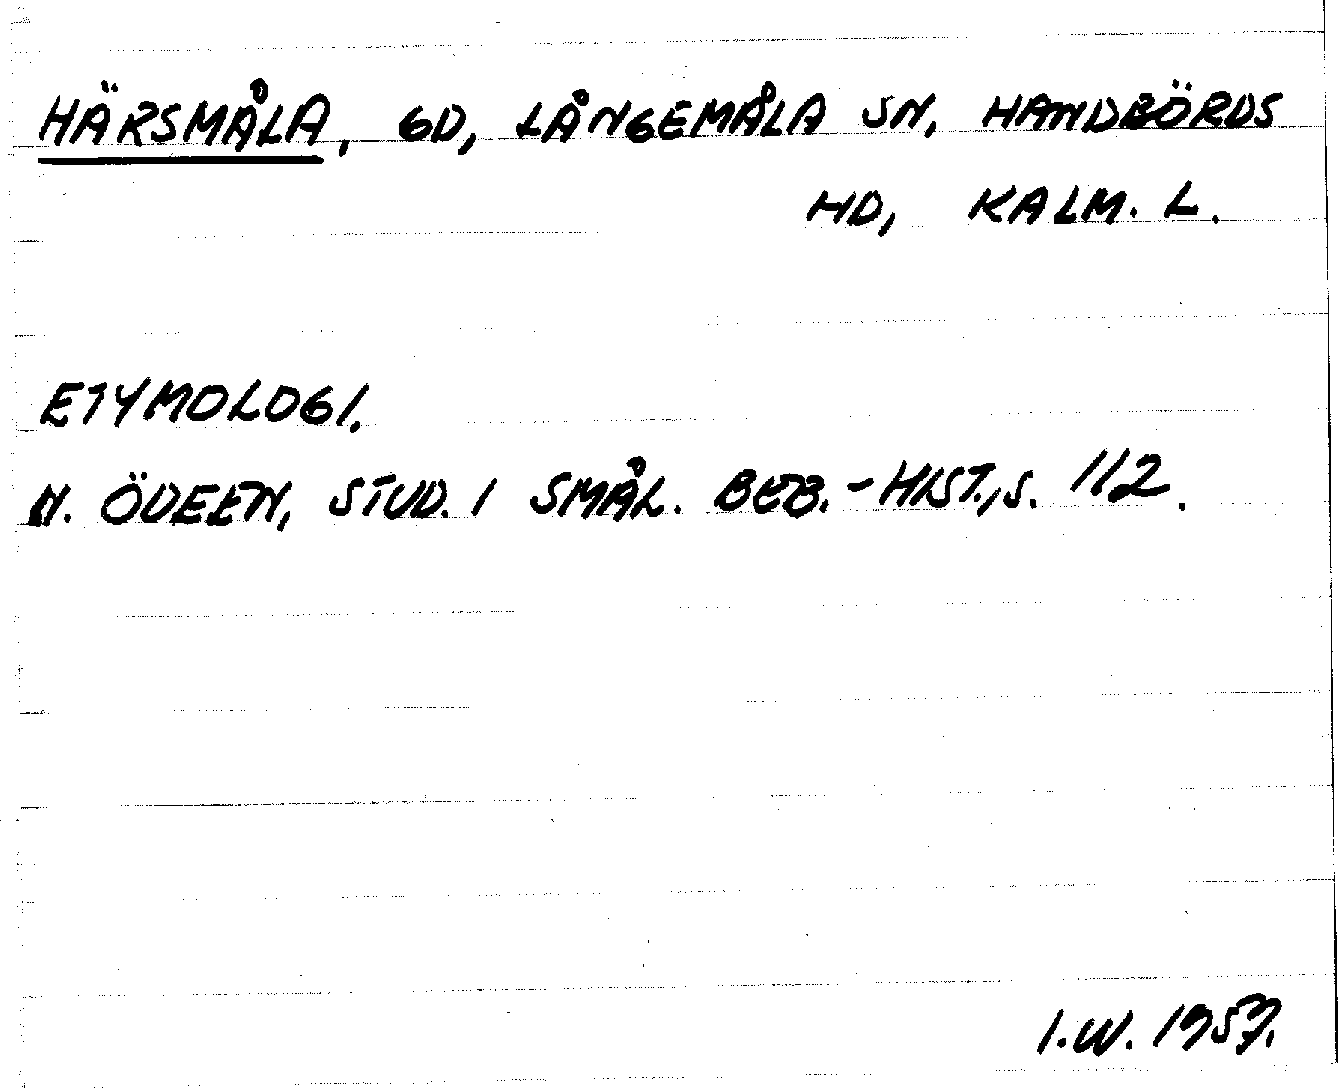 HÄRSMÅLA, GD, LÅNGEMÅLA SN, HANDBÖRDS
HD, KALM. L.
ETYMOLOGI.
N. ÖDEEN, STUD. I SMÅL. BEB.-HIST., S. 112.
I.W. 1957.